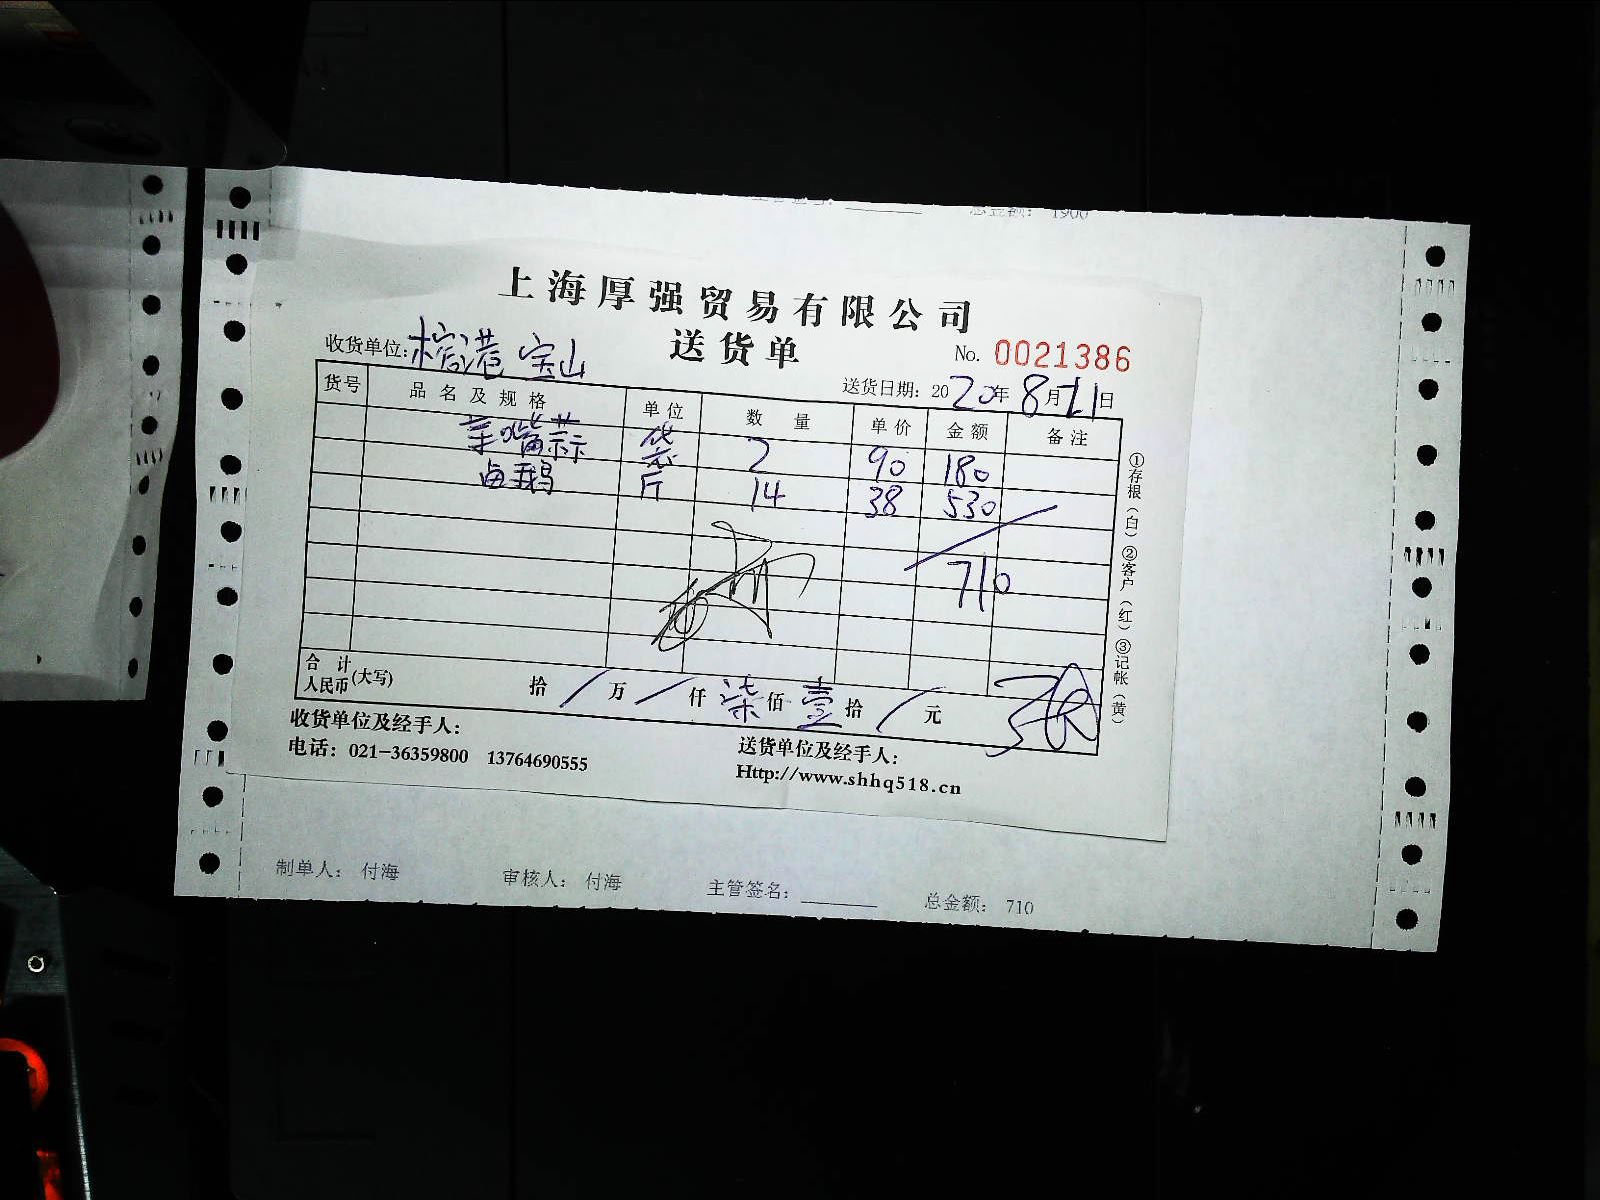 总金额： 1900
上海厚强贸易有限公司
送货单
收货单位: 榕港 宝山
No. 0021386
送货日期: 2020年8月21日
货号 品名及规格 单位 数量 单价 金额 备注
羊嘴蒜 袋 2 90 180
卤鹅 斤 14 38 530
710
合计人民币(大写) 拾 / 万 / 仟 柒 佰 壹 拾 / 元
①存根（白）②客户（红）③记帐（黄）
收货单位及经手人:
送货单位及经手人:
电话: 021-36359800 13764690555
Http://www.shhq518.cn
制单人: 付海 审核人: 付海 主管签名: 总金额: 710